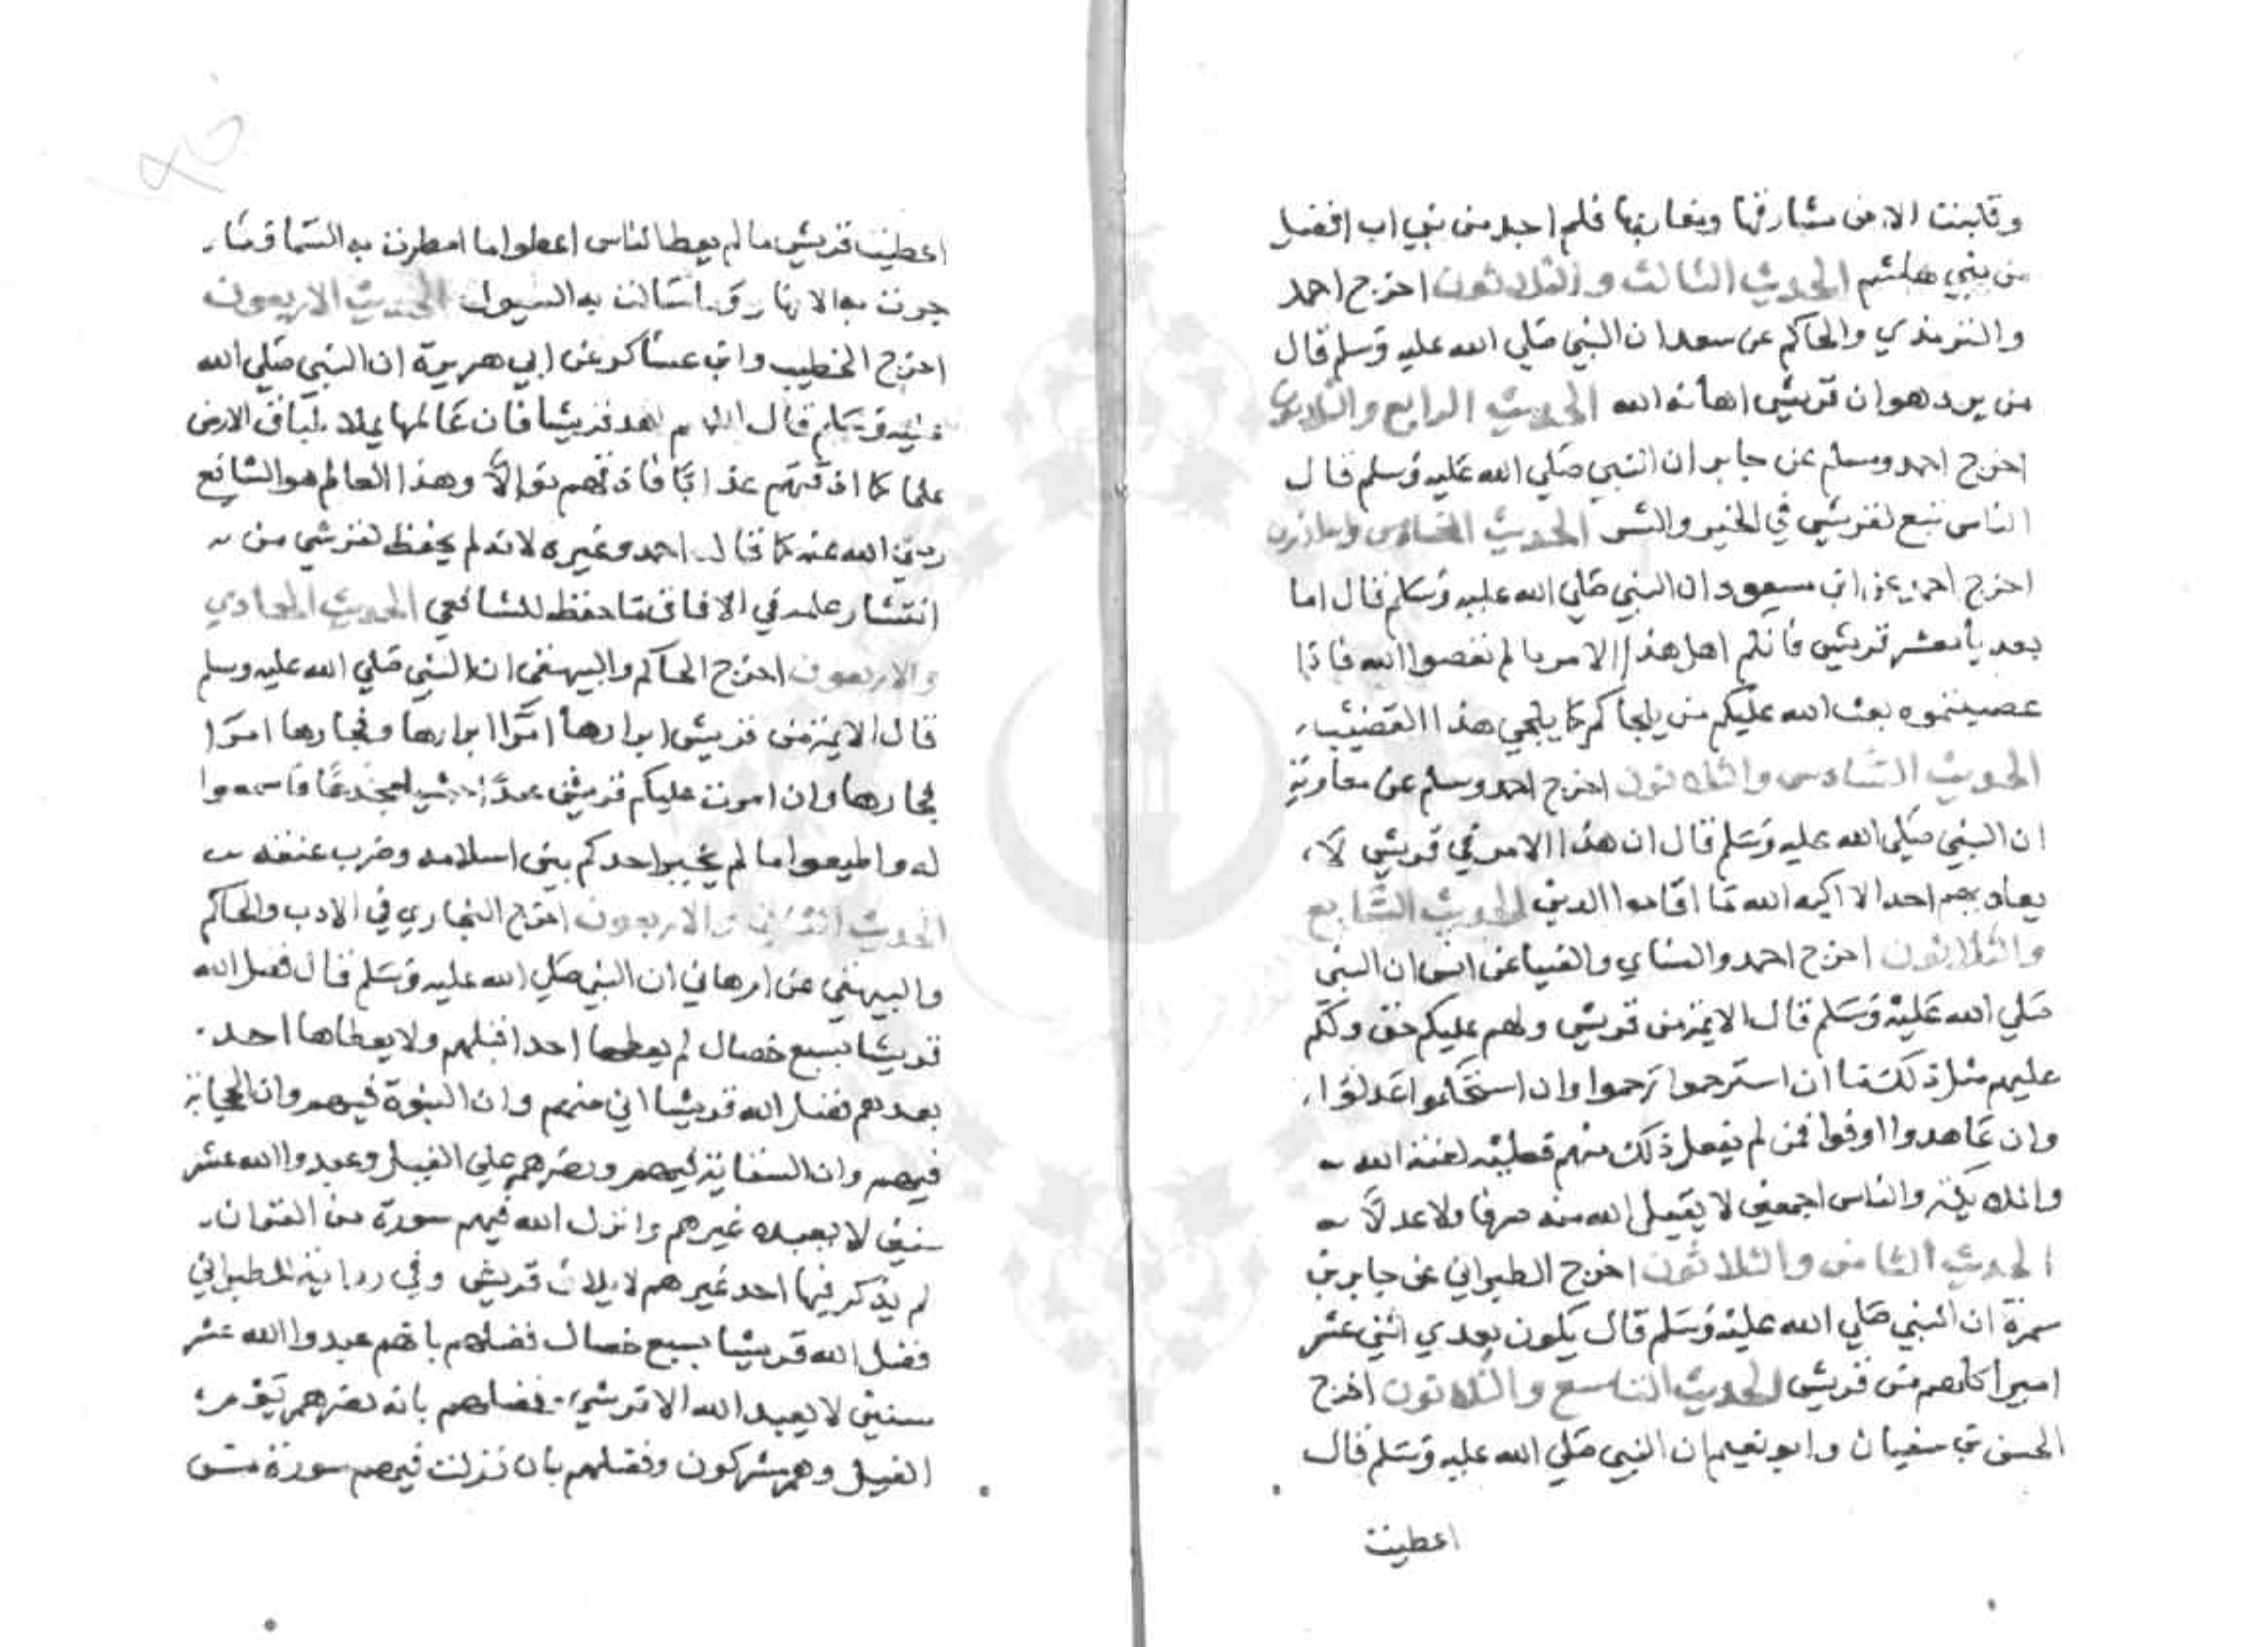 وقلبت الارض مشارقها ومغاربها فلم اجد من بني اب افضل
من بني هاشم الحديث الثالث والثلاثون اخرج احمد
والترمذي والحاكم عن سعد ان النبي صلي الله عليه وسلم قال
من يرد هوان قريش اهانه الله الحديث الرابع والثلاثون
اخرج احمد ومسلم عن جابر ان النبي صلي الله عليه وسلم قال
الناس تبع لقريش في الخير والشر الحديث الخامس والثلاثون
اخرج احمد عن ابن مسعود ان النبي صلي الله عليه وسلم قال اما
بعد يا معشر قريش فانكم اهل هذا الامر ما لم تعصوا الله فاذا
عصيتموه بعث الله عليكم من يلحاكم كما يلحي هذا القضيب
الحديث السادس والثلاثون اخرج احمد ومسلم عن معاوية
ان النبي صلي الله عليه وسلم قال ان هذا الامر في قريش لا
يعاديهم احد الا اكبه الله ما اقاموا الدين الحديث السابع
والثلاثون اخرج احمد والنساي والضيا عن انس ان النبي
صلي الله عليه وسلم قال الايمة من قريش ولهم عليكم حق ولكم
عليهم مثل ذلك ما ان استرحموا رحموا وان استحكموا عدلوا
وان عاهدوا اوفوا فمن لم يفعل ذلك منهم فعليه لعنة الله
والملايكة والناس اجمعين لا يقبل الله منه صرفا ولا عدلا
الحديث الثامن والثلاثون اخرج الطبراني عن جابر بن
سمرة ان النبي صلي الله عليه وسلم قال يكون بعدي اثني عشر
اميرا كلهم من قريش الحديث التاسع والثلاثون اخرج
الحسن بن سفيان وابو نعيم ان النبي صلي الله عليه وسلم قال
اعطيت
اعطيت قريش ما لم يعط الناس اعطوا ما امطرت به السما وما
جرت به الانهار وما سالت به السيول الحديث الاربعون
اخرج الخطيب وابن عساكر عن ابي هريرة ان النبي صلي الله
عليه وسلم قال اللهم اهد قريشا فان عالمها يملا طباق الارض
علما كما اذقتهم عذابا فاذقهم نوالا وهذا العالم هو الشافع
رضي الله عنه كما قال احمد وغيره لانه لم يحفظ لقرشي من
انتشار علمه في الافاق ما حفظ للشافعي الحديث الحادي
والاربعون اخرج الحاكم والبيهقي ان النبي صلي الله عليه وسلم
قال الايمة من قريش ابرارها امرا ابرارها وفجارها امرا
فجارها وان امرت عليكم قريش عبدا حبشيا مجدعا فاسمعوا
له واطيعوا ما لم يخير احدكم بين اسلامه وضرب عنقه
الحديث الثاني والاربعون اخرج البخاري في الادب والحاكم
والبيهقي عن ام هاني ان النبي صلي الله عليه وسلم قال فضل الله
قريشا بسبع خصال لم يعطها احدا قبلهم ولا يعطاها احد
بعدهم فضل الله قريشا اني منهم وان النبوة فيهم وان الحجابة
فيهم وان السقاية فيهم ونصرهم علي الفيل وعبدوا الله عشر
سنين لا يعبده غيرهم وانزل الله فيهم سورة من القران
لم يذكر فيها احد غيرهم لايلاف قريش وفي رواية للطبراني
فضل الله قريشا بسبع خصال فضلهم بانهم عبدوا الله عشر
سنين لا يعبد الله الا قرشي وفضلهم بانه نصرهم يوم
الفيل وهم مشركون وفضلهم بان نزلت فيهم سورة من